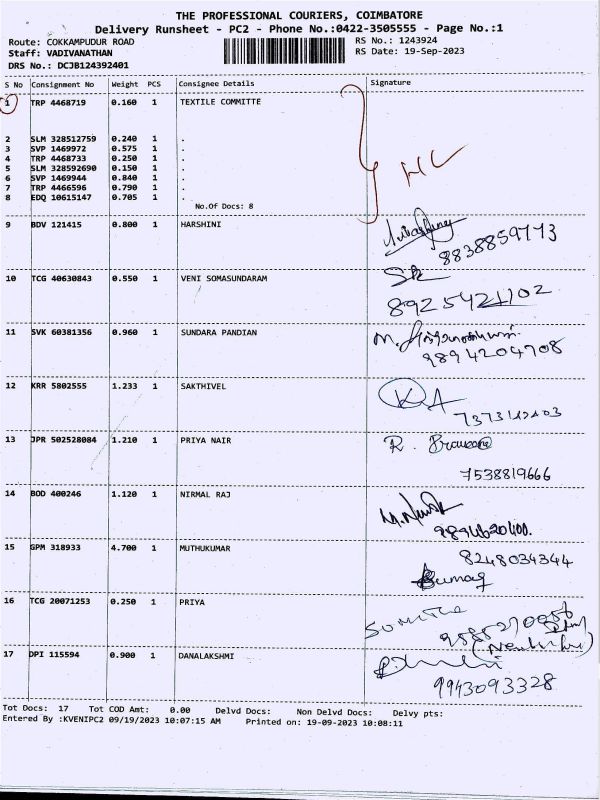 THE PROFESSIONAL COURIERS, COIMBATORE
Delivery Runsheet - PC2 - Phone No.:0422-3505555 - Page No.:1
Route: COKKAMPUDUR ROAD RS No.: 1243924
Staff: VADIVANATHAN RS Date: 19-Sep-2023
DRS No.: DCJB124392401
S No Consignment No Weight PCS Consignee Details Signature
1 TRP 4468719 0.160 1 TEXTILE COMMITTE
2 SLM 328512759 0.240 1 .
3 SVP 1469972 0.575 1 .
4 TRP 4468733 0.250 1 .
5 SLM 328592690 0.150 1 .
6 SVP 1469944 0.840 1 .
7 TRP 4466596 0.790 1 .
8 EDQ 10615147 0.705 1 .
No.Of Docs: 8
9 BDV 121415 0.800 1 HARSHINI
8838859773
10 TCG 40630843 0.550 1 VENI SOMASUNDARAM
8925421102
11 SVK 60381356 0.960 1 SUNDARA PANDIAN
9894204708
12 KRR 5802555 1.233 1 SAKTHIVEL
KA
13 JPR 502528084 1.210 1 PRIYA NAIR
R.
7538819666
14 BOD 400246 1.120 1 NIRMAL RAJ
15 GPM 318933 4.700 1 MUTHUKUMAR 8248034344
16 TCG 20071253 0.250 1 PRIYA
17 DPI 115594 0.900 1 DANALAKSHMI
9943093328
Tot Docs: 17 Tot COD Amt: 0.00 Delvd Docs: Non Delvd Docs: Delvy pts:
Entered By :KVENIPC2 09/19/2023 10:07:15 AM Printed on: 19-09-2023 10:08:11